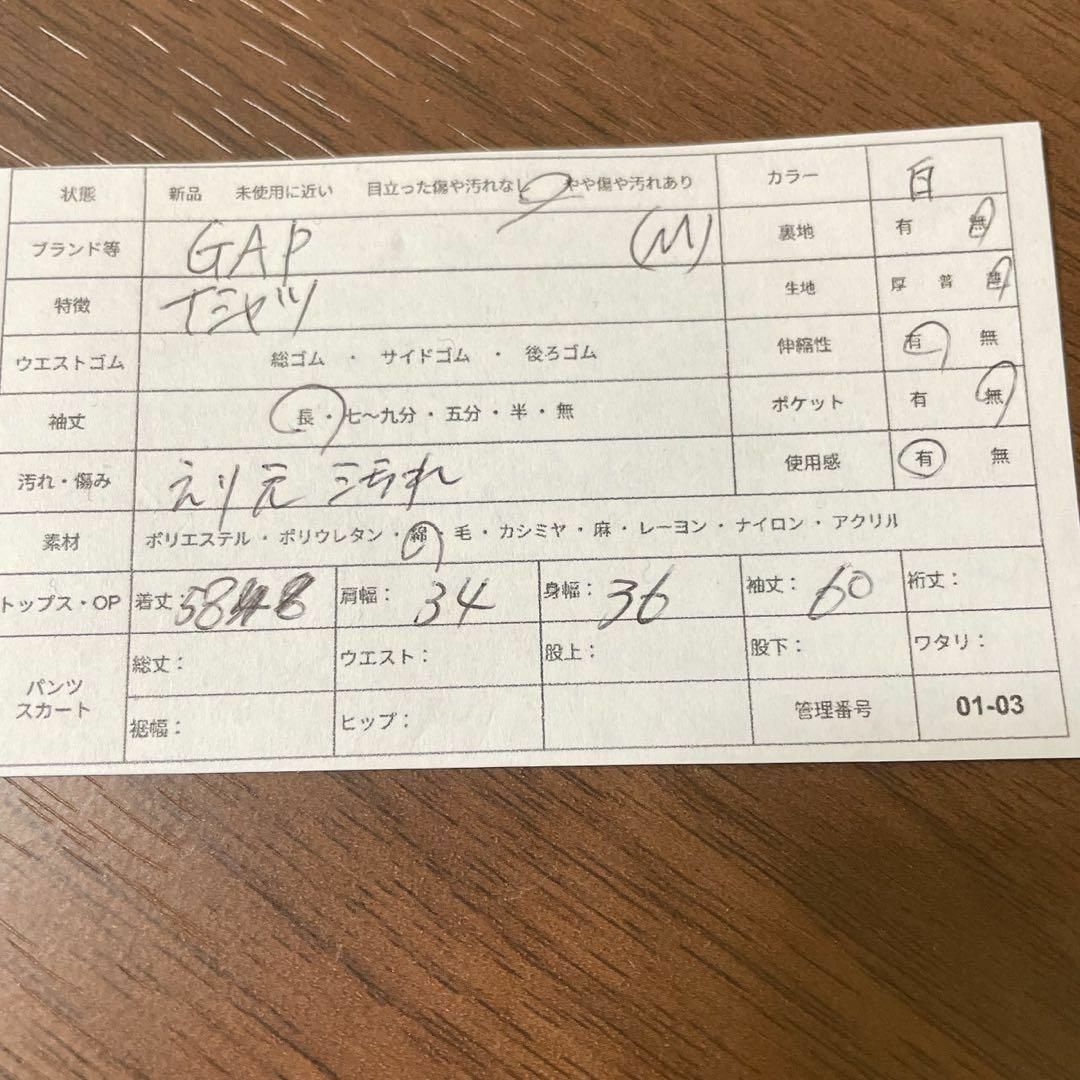 状態 新品 未使用に近い 目立った傷や汚れなし やや傷や汚れあり カラー 白
ブランド等 GAP (M) 裏地 有 無
特徴 Tシャツ 生地 厚 普 薄
ウエストゴム 総ゴム ・ サイドゴム ・ 後ろゴム 伸縮性 有 無
袖丈 長・七〜九分・五分・半・無 ポケット 有 無
汚れ・傷み えり元 汚れ 使用感 有 無
素材 ポリエステル・ポリウレタン・綿・毛・カシミヤ・麻・レーヨン・ナイロン・アクリル
トップス・OP 着丈: 58 肩幅: 34 身幅: 36 袖丈: 60 裄丈:
パンツ スカート 総丈: ウエスト: 股上: 股下: ワタリ:
裾幅: ヒップ: 管理番号 01-03